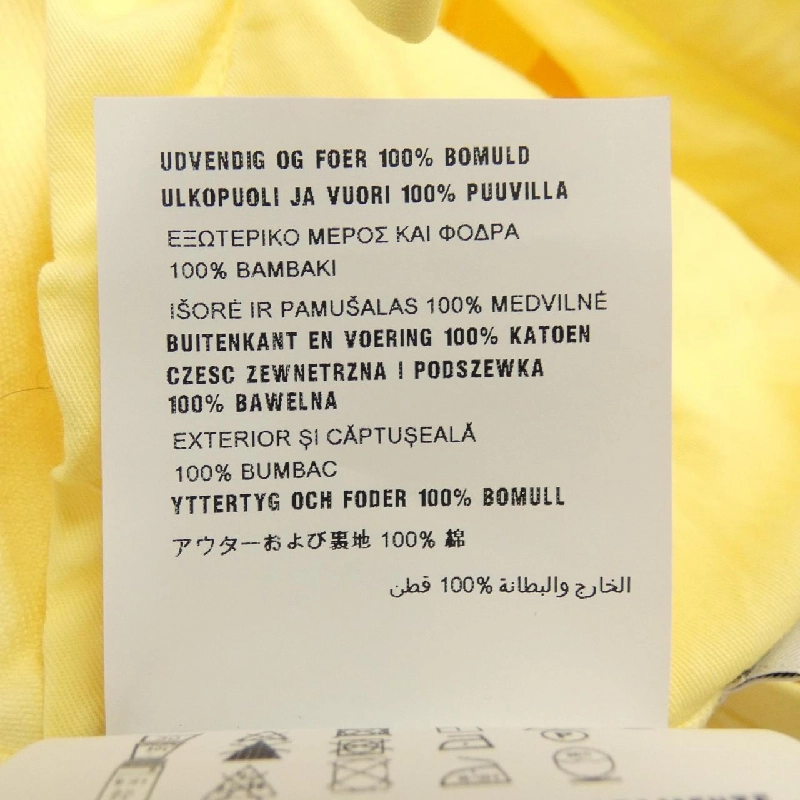 UDVENDIG OG FOER 100% BOMULD
ULKOPUOLI JA VUORI 100% PUUVILLA
ΕΞΩΤΕΡΙΚΟ ΜΕΡΟΣ ΚΑΙ ΦΟΔΡΑ
100% ΒΑΜΒΑΚΙ
IŠORĖ IR PAMUŠALAS 100% MEDVILNĖ
BUITENKANT EN VOERING 100% KATOEN
CZESC ZEWNETRZNA I PODSZEWKA
100% BAWELNA
EXTERIOR ŞI CĂPTUŞEALĂ
100% BUMBAC
YTTERTYG OCH FODER 100% BOMULL
アウターおよび裏地 100% 綿
الخارج والبطانة 100% قطن